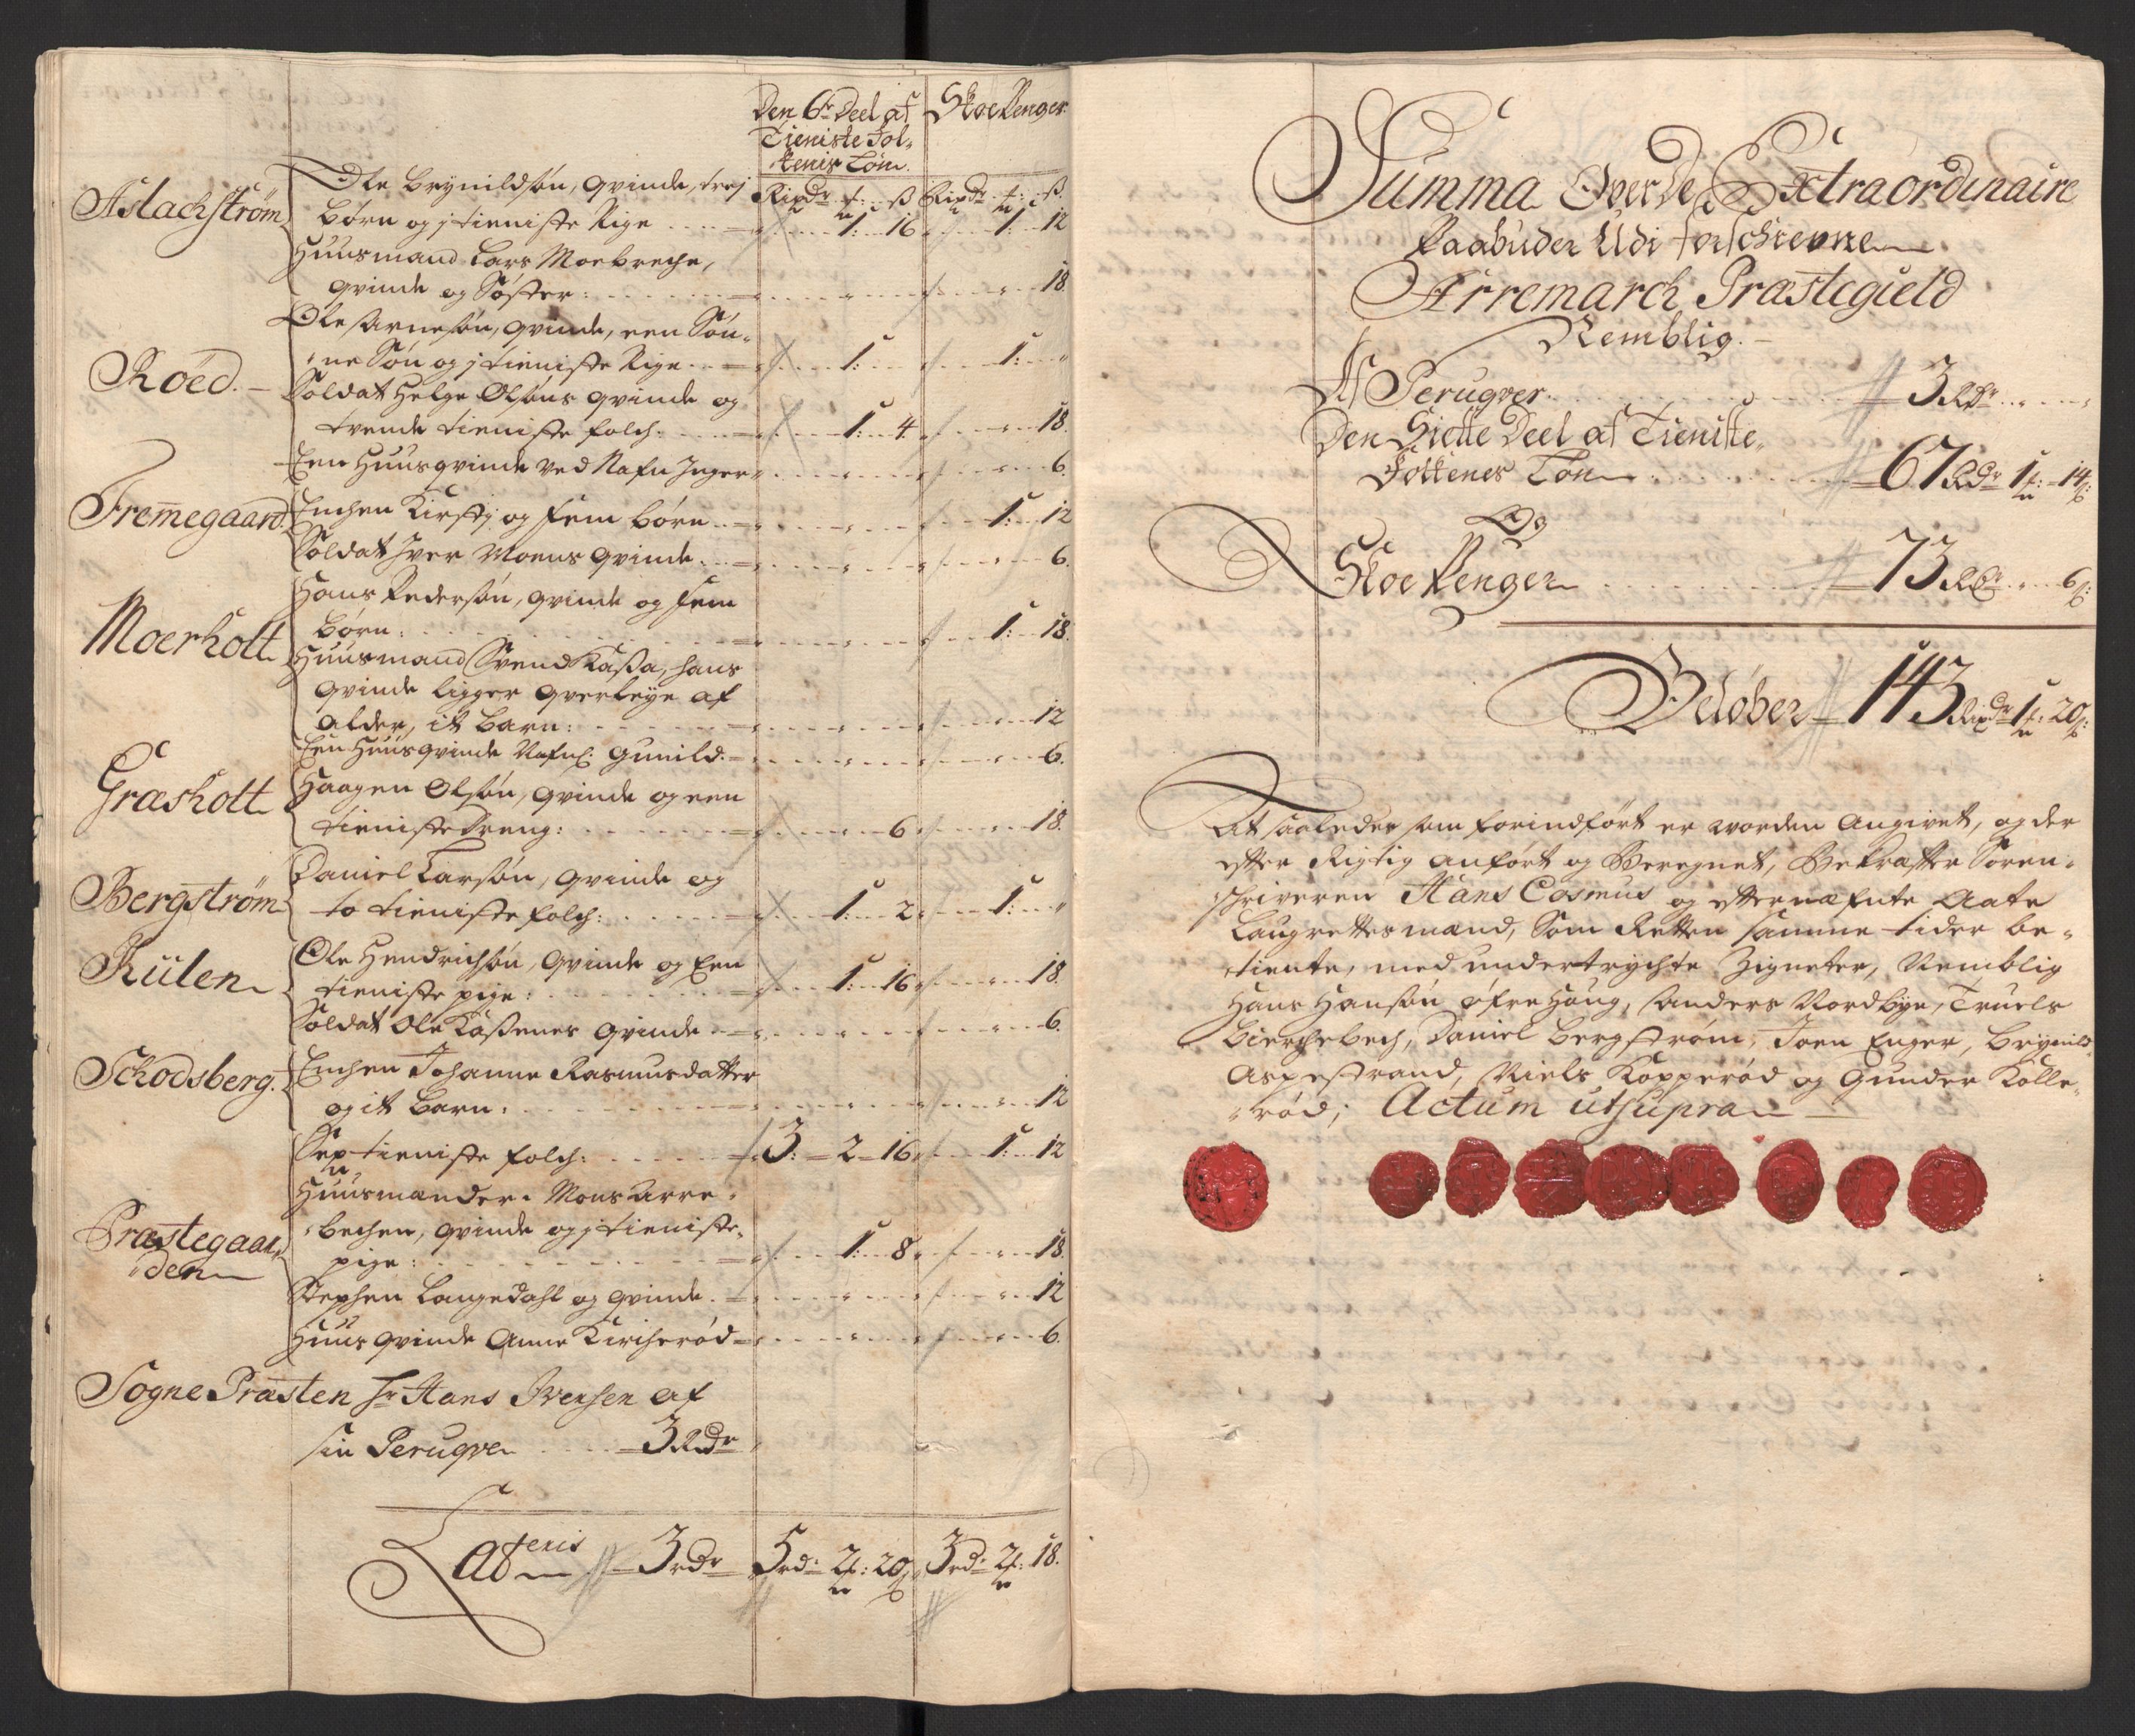 Den 6te Deel af
Tieniste Fol-
kenis Løn.
Skoe Penger.
Rixdr. ft: ß Rixdr. ft: ß
Aslachstrøm
Ole Brynildsøn, qvinde, trej
børn og j tieniste Pige .... 1: 16 1: 12
Huusmand Lars Moebreche,
qvinde og Søster: .... 18
Røed.
Ole Arnesøn, qvinde, een Søn-
ne Søn og j tieniste Pige .. 1: 1:
Soldat Helge Olsøns qvinde og
tvende tieniste folch: .... 1: 4. 18.
Een Huusqvinde ved Nafn Inger 6.
Fremegaard.
Enchen Kirstj og fem børn .. 1: 12
Soldat Iver Moens qvinde .. 6.
Moerholt
Hans Pedersøn, qvinde og fem
børn: .... 1: 18.
Huusmand Svend Kaßa, hans
qvinde ligger qverleye af
alder, it barn: .... 12
Een Huusqvinde Nafnl: Gunild. 6.
Græsholt
Haagen Olsøn, qvinde og een
tieniste dreng: .... 6 18.
Bergstrøm
Daniel Larsøn, qvinde og
to tieniste folch: .... 1: 2 1:
Kulen
Ole Hendrichsøn, qvinde og Een
tieniste pige: .... 1: 16 18.
Soldat Ole Kaßenes qvinde .. 6.
Schodsberg.
Enchen Johanne Rasmusdatter
og it barn: .... 12
Præstegaar-
den
Sex tieniste folch: .... 3: 2 16 1: 12
Huusmænder. Mons Arre-
bechen, qvinde og j tieniste
pige: .... 1: 8 18.
Stephen Langedahl og qvinde .. 12
Huus qvinde Anne Kircherød 6.
Sogne Præsten Hr Hans Iversen af
sin Peruqve .... 3 Rdr
Lateris 3 rdr 5 rd: 2 ft: 20 ß 3 rd: 2 ft: 18.
Summa Over de Extraordinaire
Paabuder Udi forschrevne
Arremarch Præstegield
Nemblig.
Af Peruqver .... 3 Rdr
Den Siette Deel af Tieniste
Folkenes Løn .... 67 Rdr 1 ft: 14 ß:
Og
Skoe Penger .... 73 Rdr 6 ß:
Beløber 143 Rixdr 1 ft: 20 ß:
At saaledes som forindført er worden Angivet, og der
efter Rigtig anført og Beregnet, Bekræfter Soren-
schriveren Hans Cosmus og efternæfnte Aate
Laugrettesmænd, Som Retten samme tider be-
tiente, med undertrychte Zigneter, Nemblig
Hans Hansøn øfre Houg, Anders Nordbye, Truels
Bierchebech, Daniel Bergstrøm, Joen Enger, Brynild
Aspestrand, Niels Kopperød og Gunder Kolle-
rød; Actum ut supra